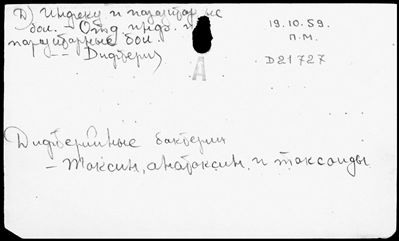 Д) Инфекц и паразитар ис
бол. - Отд инф. и
паразитарные бол.
-- Дифтерия
19.10.59.
П.М.
А
D21727
Дифтерийные бактерии
- Токсин, анатоксин и токсоиды